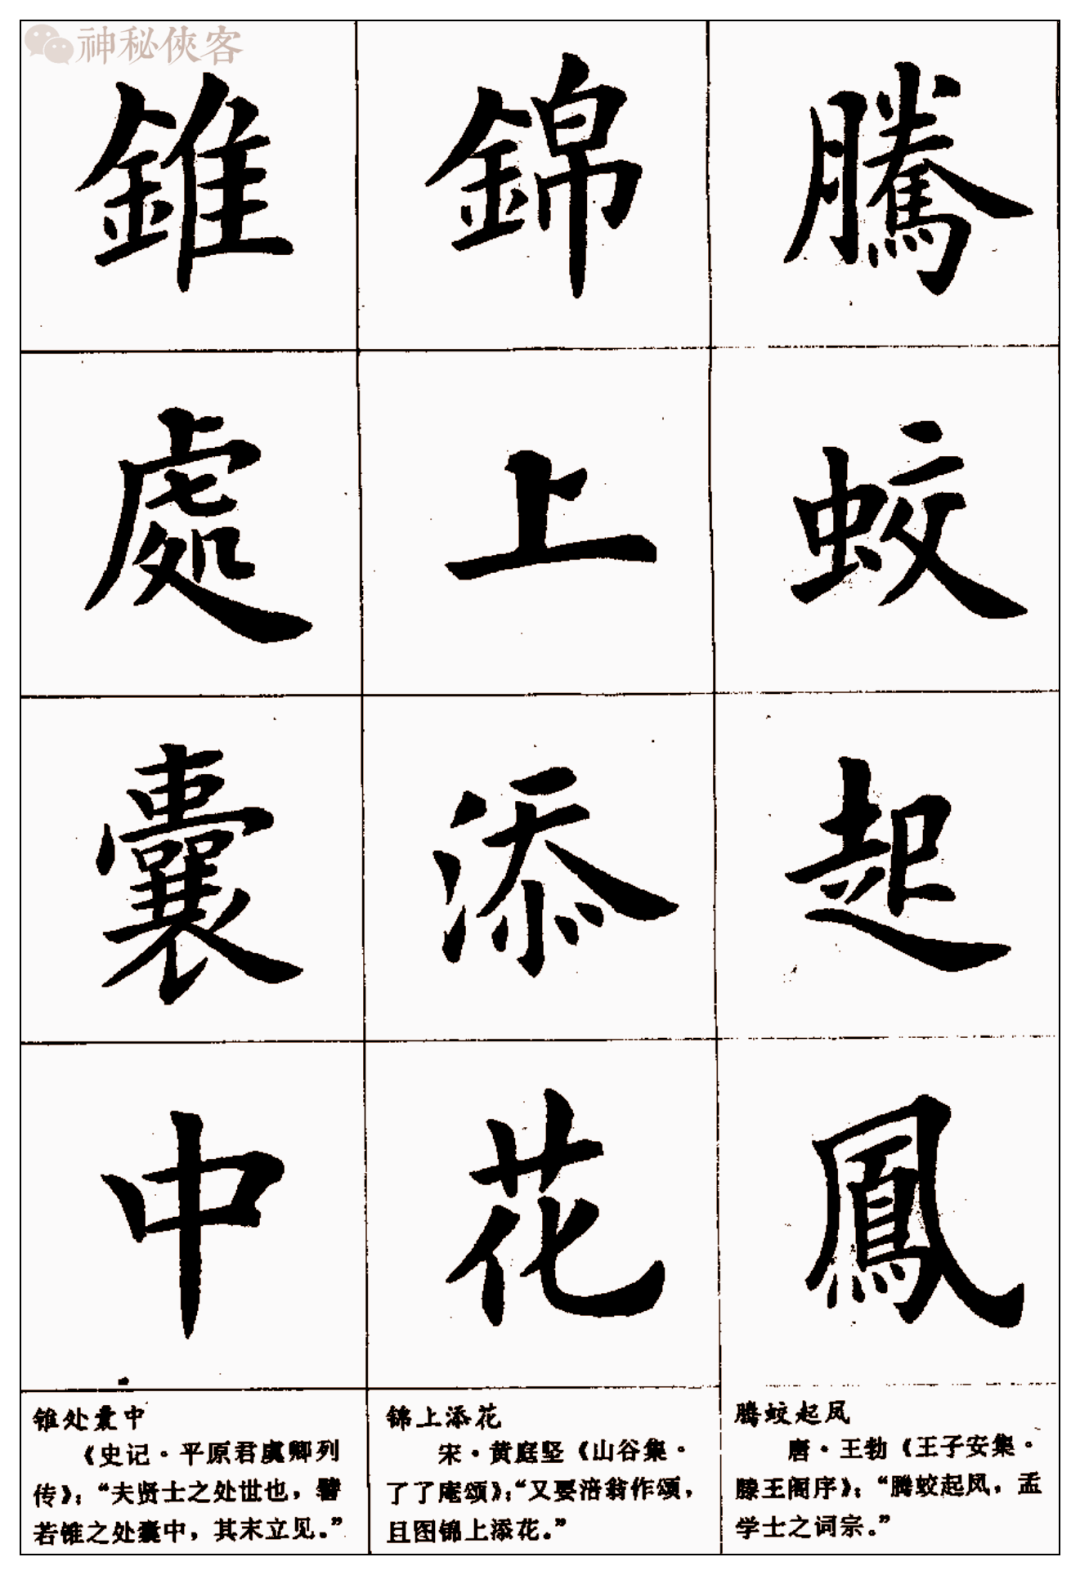 神秘俠客
騰蛟起鳳
錦上添花
錐處囊中
腾蛟起凤
唐·王勃《王子安集·
滕王阁序》：“腾蛟起凤，孟
学士之词宗。”
锦上添花
宋·黄庭坚《山谷集·
了了庵颂》：“又要涪翁作颂，
且图锦上添花。”
锥处囊中
《史记·平原君虞卿列
传》：“夫贤士之处世也，譬
若锥之处囊中，其末立见。”